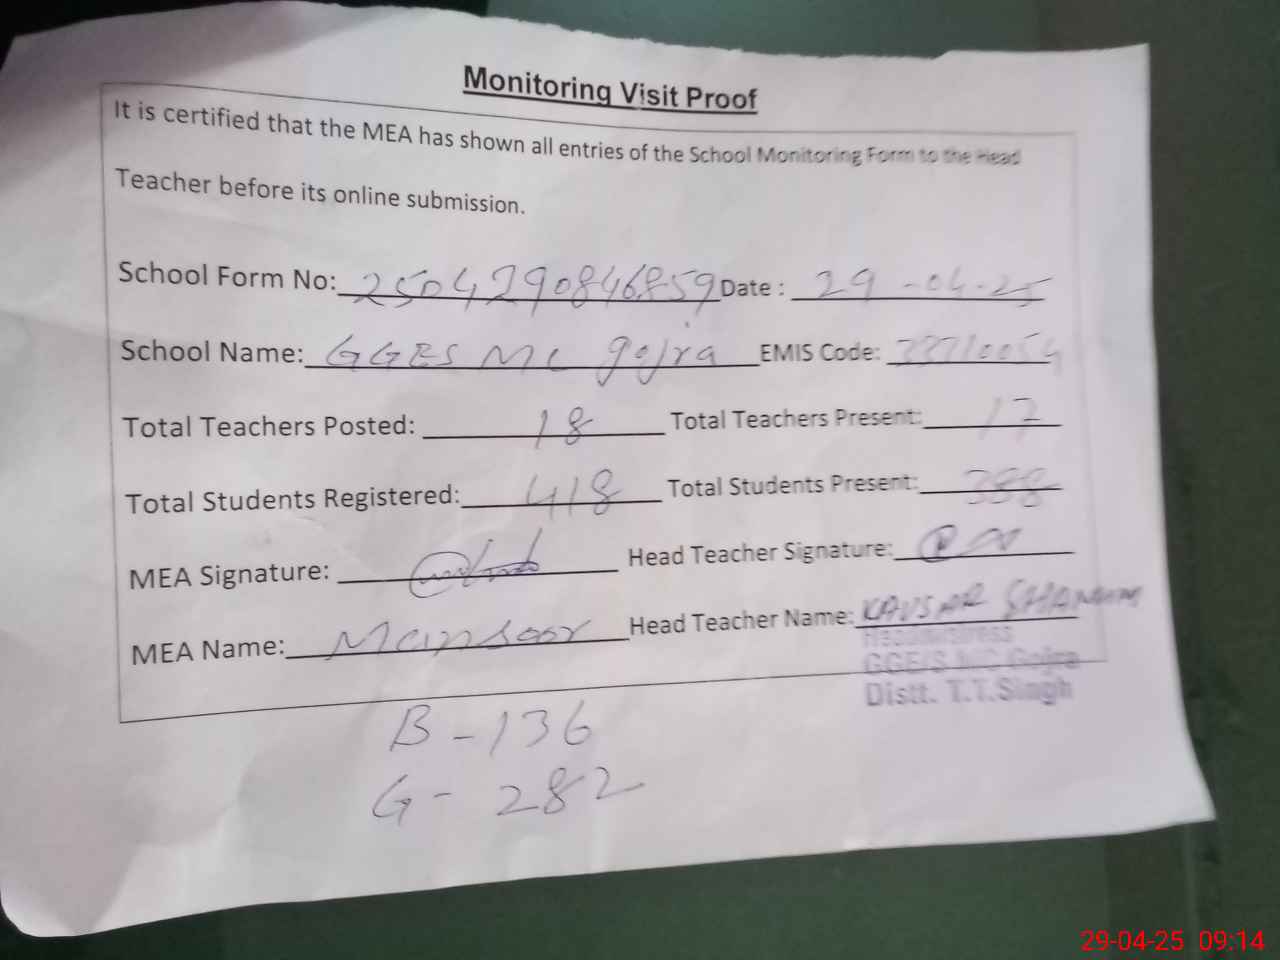 Monitoring Visit Proof
It is certified that the MEA has shown all entries of the School Monitoring Form to the Head
Teacher before its online submission.
School Form No: 250429084 6859 Date : 29-04-25
School Name: GGES MC gojra EMIS Code: 33710054
Total Teachers Posted: 18 Total Teachers Present: 17
Total Students Registered: 418 Total Students Present: 388
MEA Signature: Head Teacher Signature:
MEA Name: Mansoor Head Teacher Name: KAUSAR SHAMIM
Headmistress
GGE/S MC Gojra
Distt. T.T.Singh
B - 136
G - 282
29-04-25 09:14